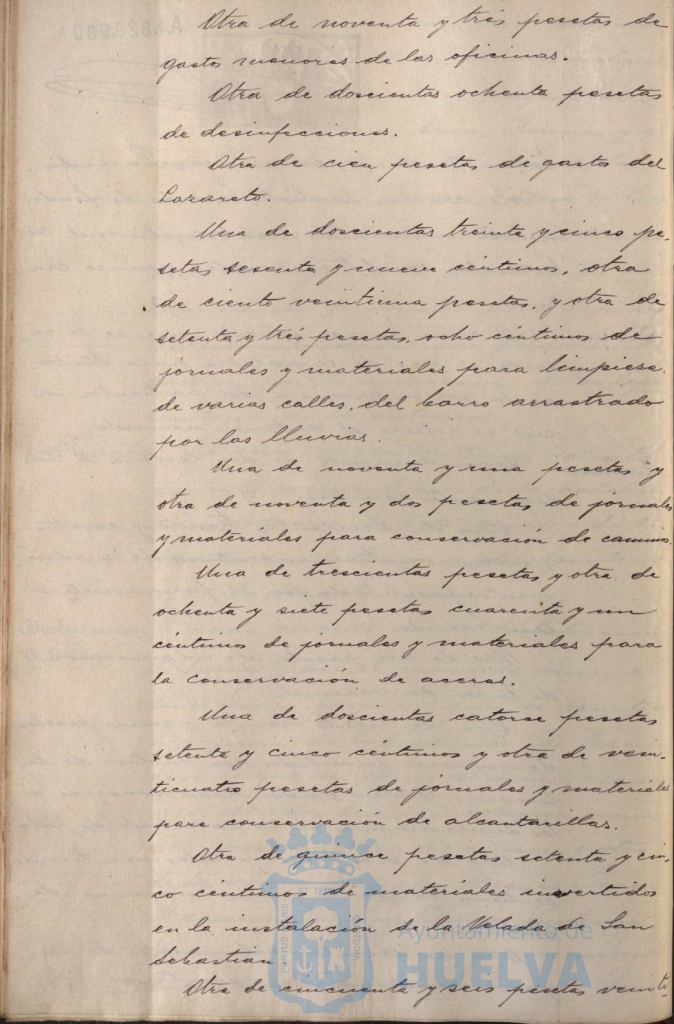 Otra de noventa y trés pesetas de
gastos menores de las oficinas.
Otra de doscientas ochenta pesetas
de desinfecciones.
Otra de cien pesetas de gastos del
Lazareto.
Una de doscientas treinta y cinco pe-
setas sesenta y nueve céntimos, otra
de ciento veintiuna pesetas, y otra de
setenta y trés pesetas, ocho céntimos de
jornales y materiales para limpieza
de varias calles, del barro arrastrado
por las lluvias.
Una de noventa y una pesetas y
otra de noventa y dos pesetas de jornales
y materiales para conservación de caminos.
Una de trescientas pesetas y otra de
ochenta y siete pesetas cuarenta y un
céntimos de jornales y materiales para
la conservación de aceras.
Una de doscientas catorse pesetas
setenta y cinco céntimos y otra de vein-
ticuatro pesetas de jornales y materiales
para conservación de alcantarillas.
Otra de quince pesetas setenta y cin-
co céntimos de materiales invertidos
en la instalación de la Velada de San
Sebastian.
Otra de cincuenta y seis pesetas veinti-
Ayuntamiento de
HUELVA